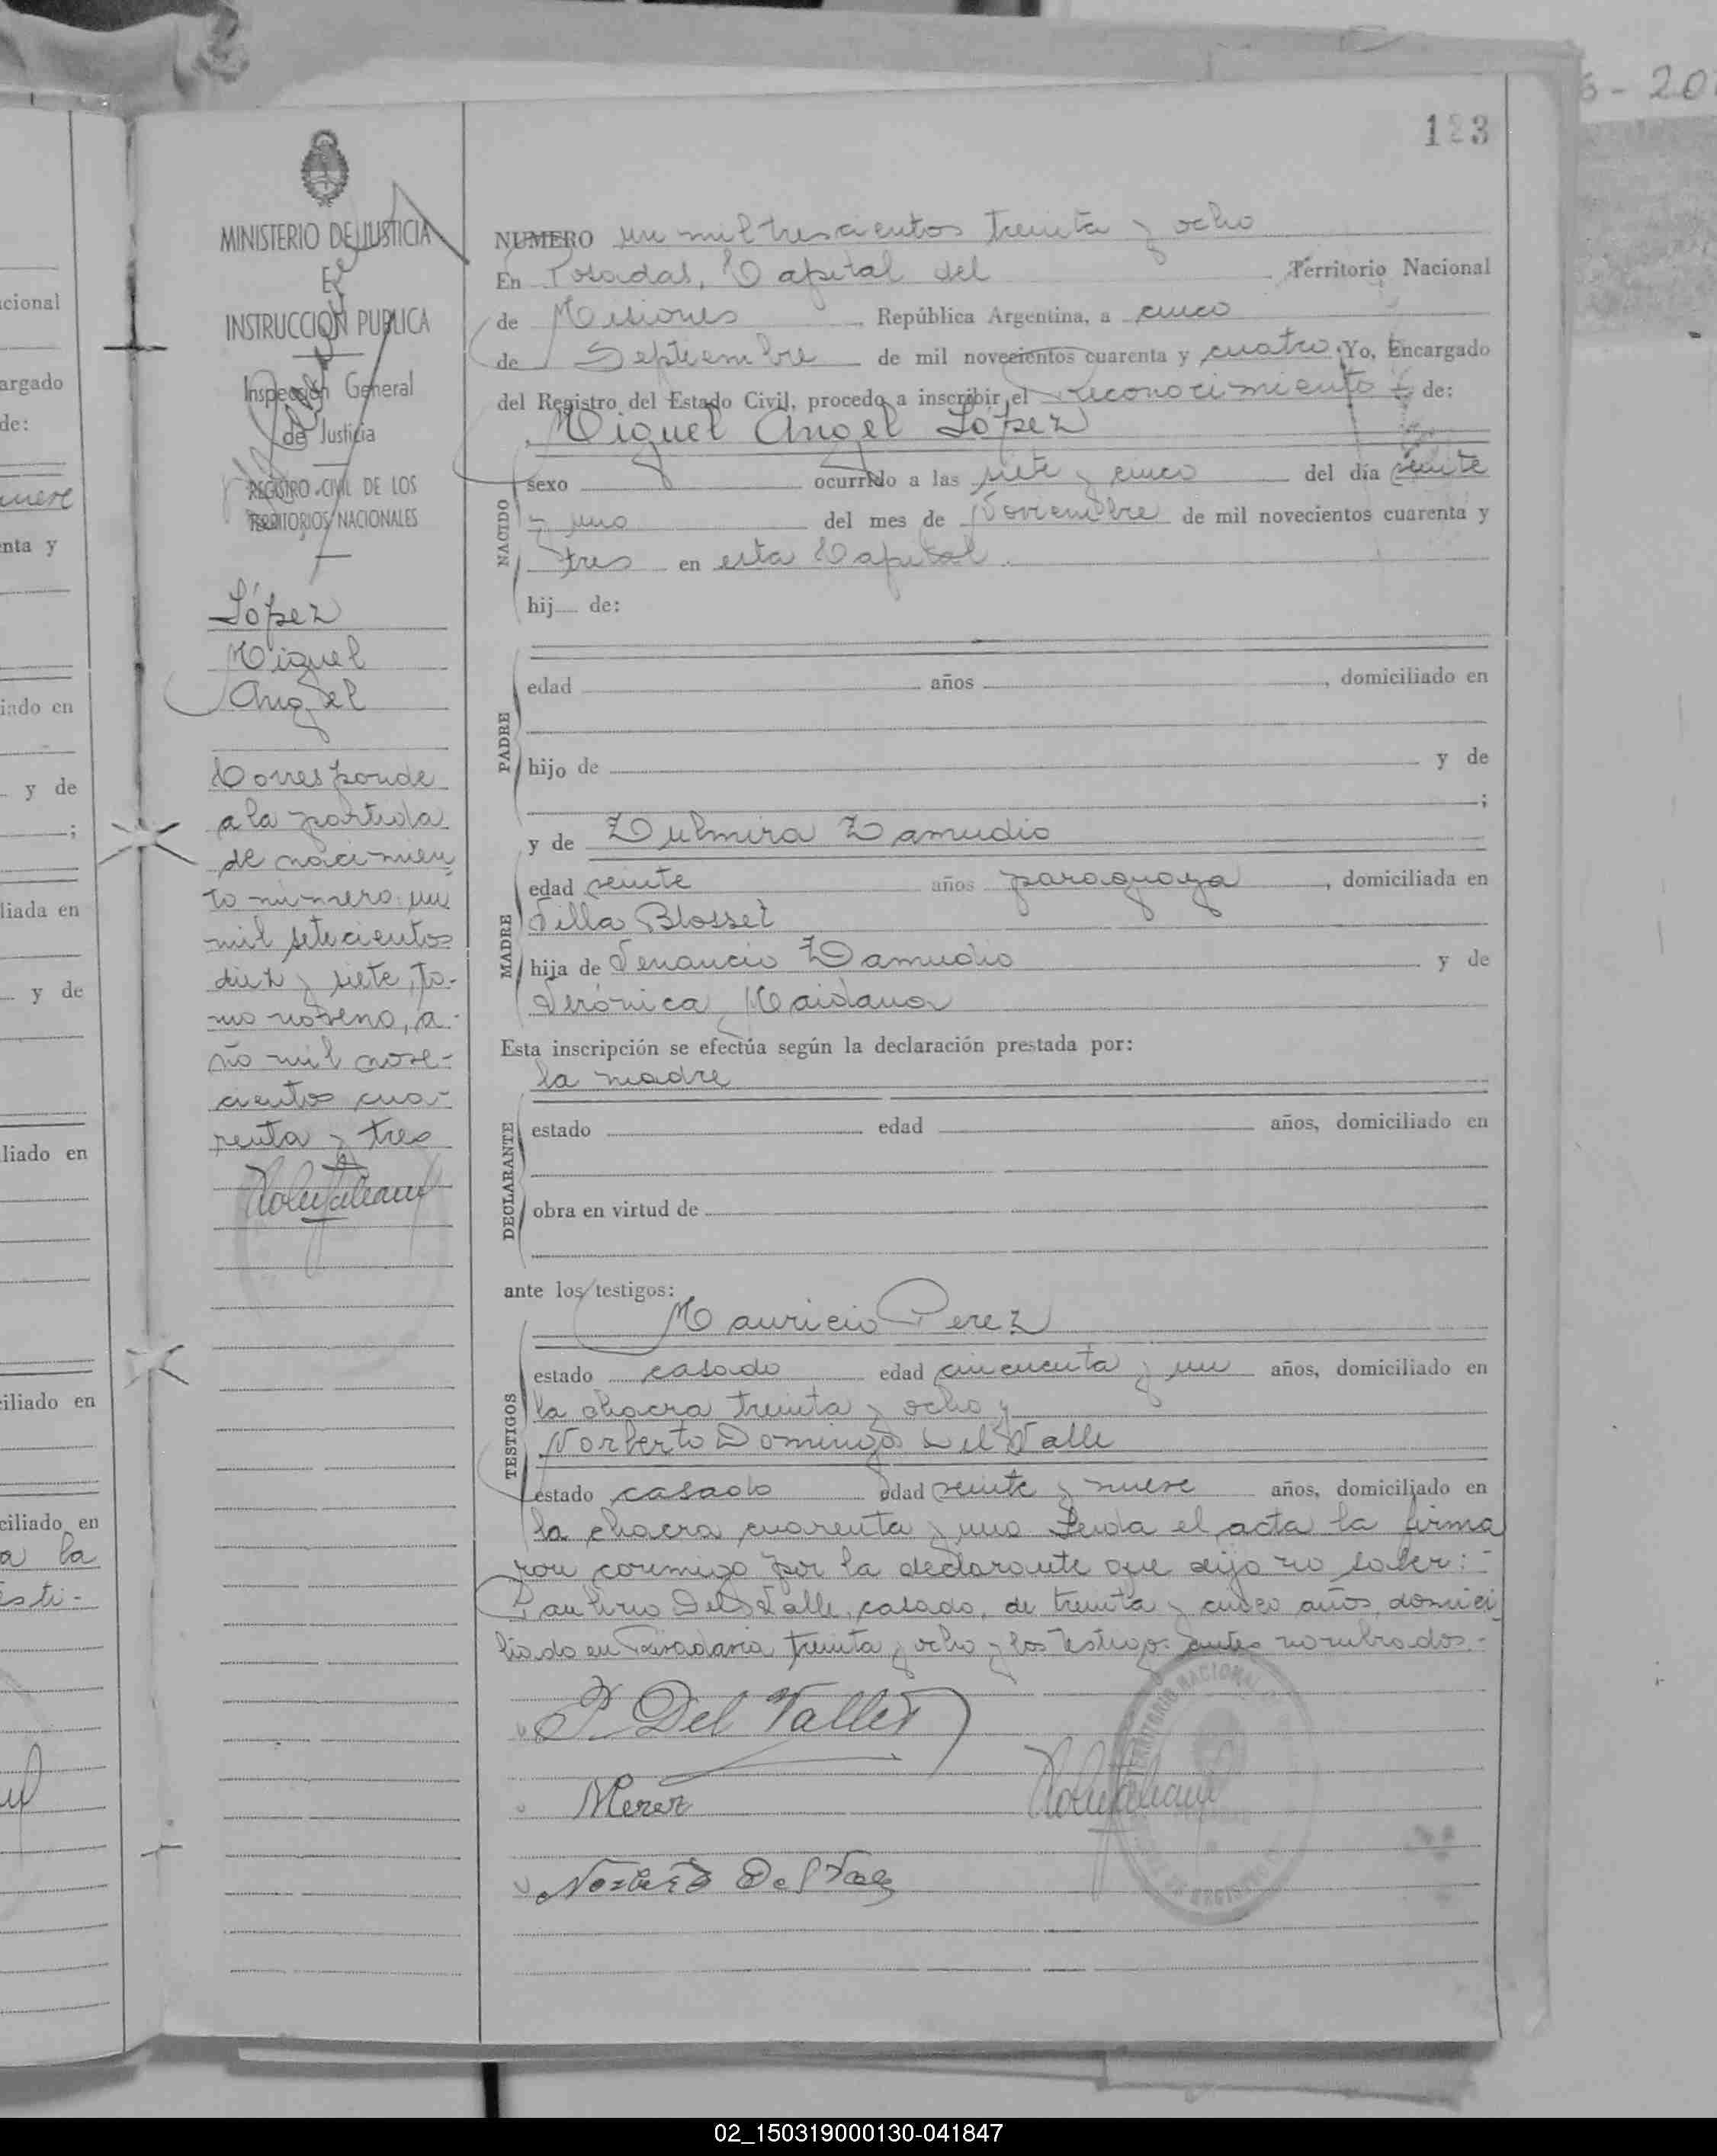 6 - 20
123
MINISTERIO DE JUSTICIA
E
INSTRUCCION PUBLICA
Inspección General
de Justicia
REGISTRO CIVIL DE LOS
TERRITORIOS NACIONALES
López
Miguel
Angel
Corresponde
a la partida
de nacimien
to número un
mil setecientos
diez y siete, to-
mo noveno, a-
ño mil nove-
cientos cua-
renta y tres
NUMERO un mil trescientos treinta y ocho
En Posadas, Capital del Territorio Nacional
de Misiones República Argentina, a cinco
de Septiembre de mil novecientos cuarenta y cuatro Yo, Encargado
del Registro del Estado Civil, procedo a inscribir el reconocimiento de:
Miguel Angel López
NACIDO
sexo ocurrido a las siete y cinco del día veinte
y uno del mes de Noviembre de mil novecientos cuarenta y
tres en esta Capital.
hij de:
PADRE
edad años , domiciliado en
hijo de y de
;
y de Zulmira Zamudio
MADRE
edad veinte años paraguaya , domiciliada en
Villa Blosset
hija de Venancio Zamudio y de
Verónica Maidana
Esta inscripción se efectúa según la declaración prestada por:
la madre
DECLARANTE
estado edad años, domiciliado en
obra en virtud de
ante los testigos:
Mauricio Perez
TESTIGOS
estado casado edad cincuenta y un años, domiciliado en
la chacra treinta y ocho y
Norberto Domingo Del Valle
estado casado edad veinte y nueve años, domiciliado en
la chacra cuarenta y uno Leida el acta la firma
ron conmigo por la declarante que dijo no saber:-
Paulino Del Valle, casado, de treinta y cinco años, domici
liado en Rivadavia treinta y ocho y los testigos antes nombrados.-
P. Del Valle
MPerez
Norberto Del Valle
TERRITORIO NACIONAL
cional
argado
de:
nueve
nta y
iado en
y de
;
liada en
y de
liado en
ciliado en
ciliado en
a la
esti-
02_150319000130-041847